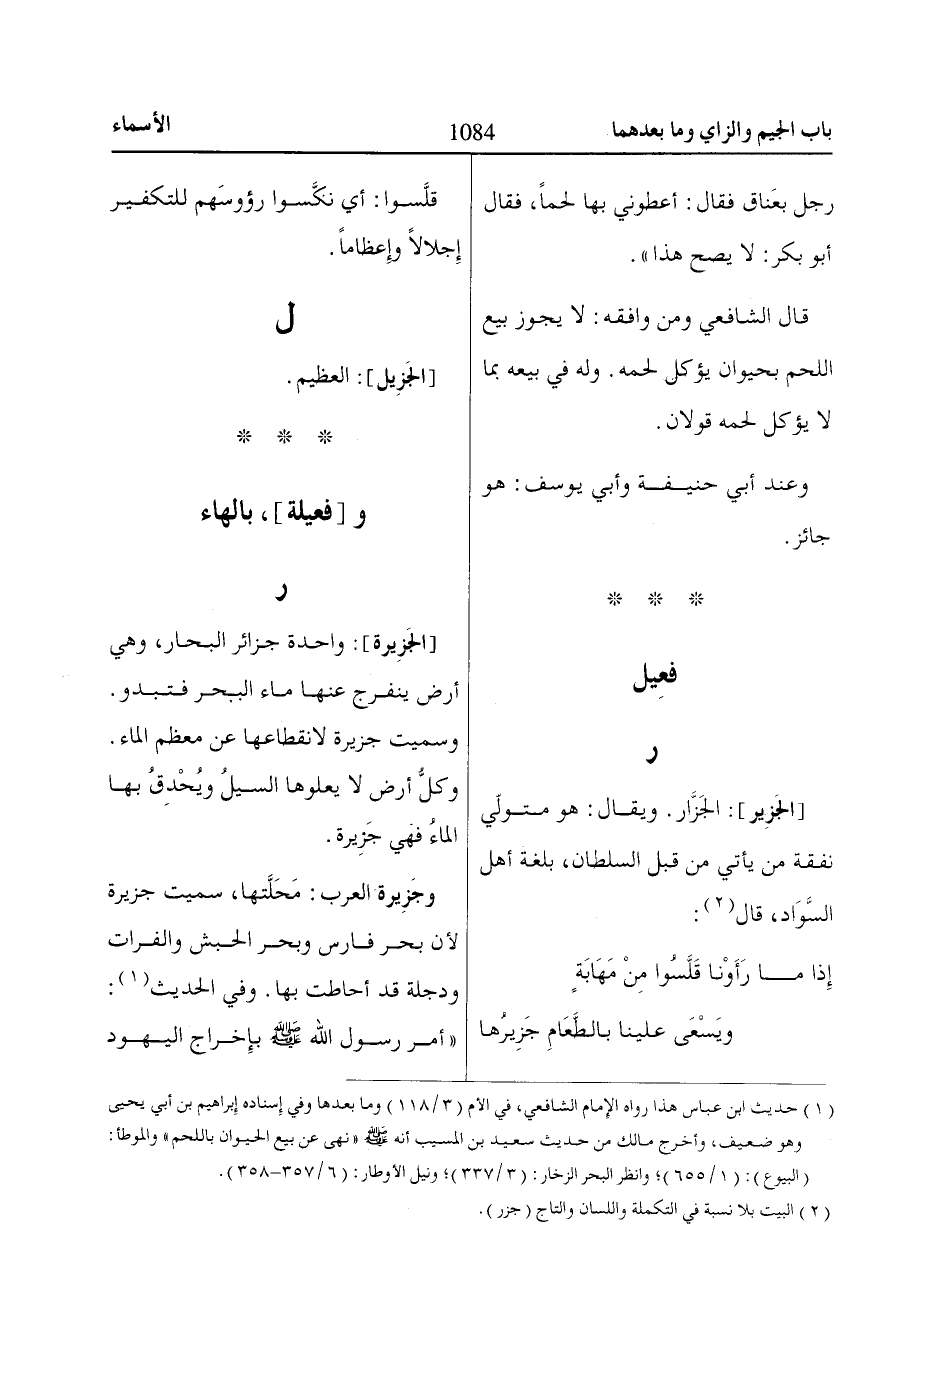 باب الجيم والزاي وما بعدهما
1084
الأسماء
رجل بعَناق فقال: أعطوني بها لحماً، فقال
أبو بكر: لا يصح هذا».
قال الشافعي ومن وافقه: لا يجوز بيع
اللحم بحيوان يؤكل لحمه. وله في بيعه بما
لا يؤكل لحمه قولان.
وعند أبي حنيفة وأبي يوسف: هو
جائز.
* * *
فَعِيل
ر
[الجَزِير]: الجَزَّار. ويقال: هو متولّي
نفقة من يأتي من قبل السلطان، بلغة أهل
السَّوَاد، قال(٢):
إذا مـا رَأَوْنا قَلَّسُوا مِنْ مَهَابَةٍ
ويَسْعَى علينا بالطَّعَامِ جَزِيرُها
قلَّسوا: أي نكَّسوا رؤوسَهم للتكفير
إجلالاً وإعظاماً.
ل
[الجَزِيل]: العظيم.
* * *
و [فعيلة]، بالهاء
ر
[الجَزِيرة]: واحدة جزائر البحار، وهي
أرض ينفرج عنها ماء البحر فتبدو.
وسميت جزيرة لانقطاعها عن معظم الماء.
وكلُّ أرض لا يعلوها السيلُ ويُحْدِقُ بها
الماءُ فهي جَزِيرة.
وجَزِيرة العرب: مَحَلَّتها، سميت جزيرة
لأن بحر فارس وبحر الحبش والفرات
ودجلة قد أحاطت بها. وفي الحديث(١):
«أمر رسول الله ﷺ بإخراج اليهود
(١) حديث ابن عباس هذا رواه الإمام الشافعي، في الأم (٣/١١٨) وما بعدها وفي إسناده إبراهيم بن أبي يحيى
وهو ضعيف، وأخرج مالك من حديث سعيد بن المسيب أنه ﷺ «نهى عن بيع الحيوان باللحم» والموطأ:
(البيوع): (١/٦٥٥)؛ وانظر البحر الزخار: (٣/٣٣٧)؛ ونيل الأوطار: (٦/٣٥٧-٣٥٨).
(٢) البيت بلا نسبة في التكملة واللسان والتاج (جزر).